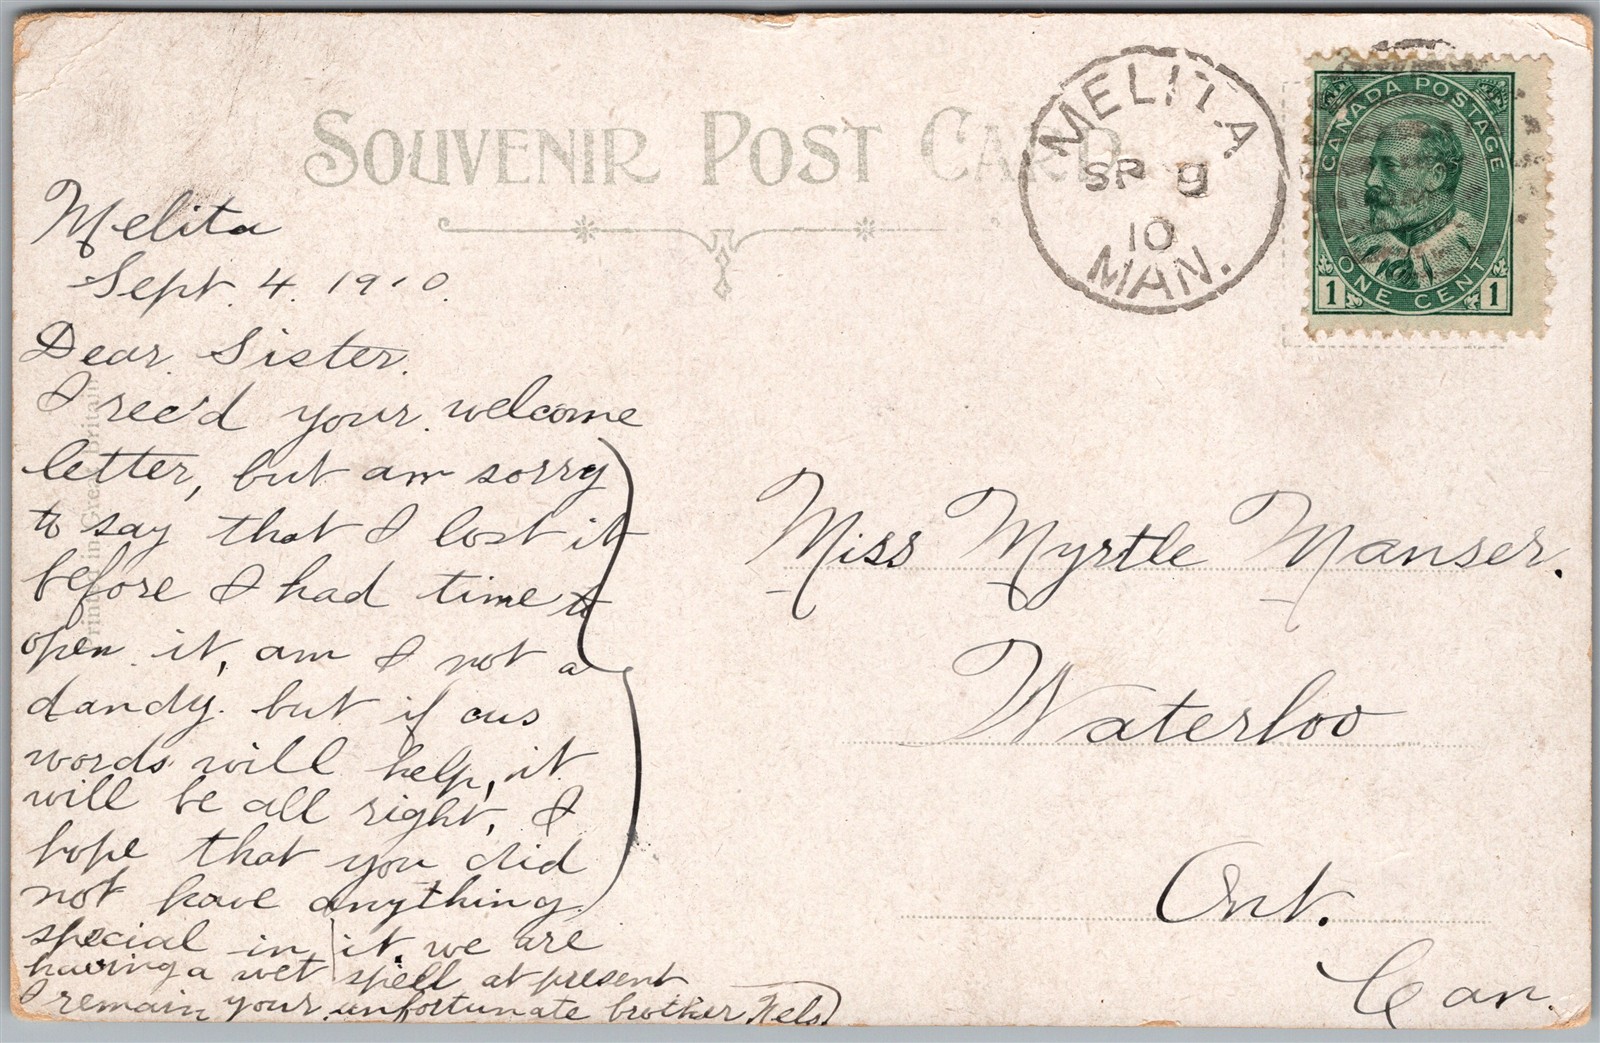 SOUVENIR POST CARD
MELITA
SP 9
10
MAN.
CANADA POSTAGE
ONE CENT
1 1
Melita
Sept. 4. 1910.
Dear Sister.
I rec'd your welcome
letter, but am sorry
to say that I lost it
before I had time to
open it, am I not a
dandy. but if cus
words will help, it
will be all right, I
hope that you did
not have anything
special in it. we are
having a wet spell at present
I remain your unfortunate brother Nels.
Printed in Great Britain
Miss Myrtle Manser.
Waterloo
Ont.
Can.